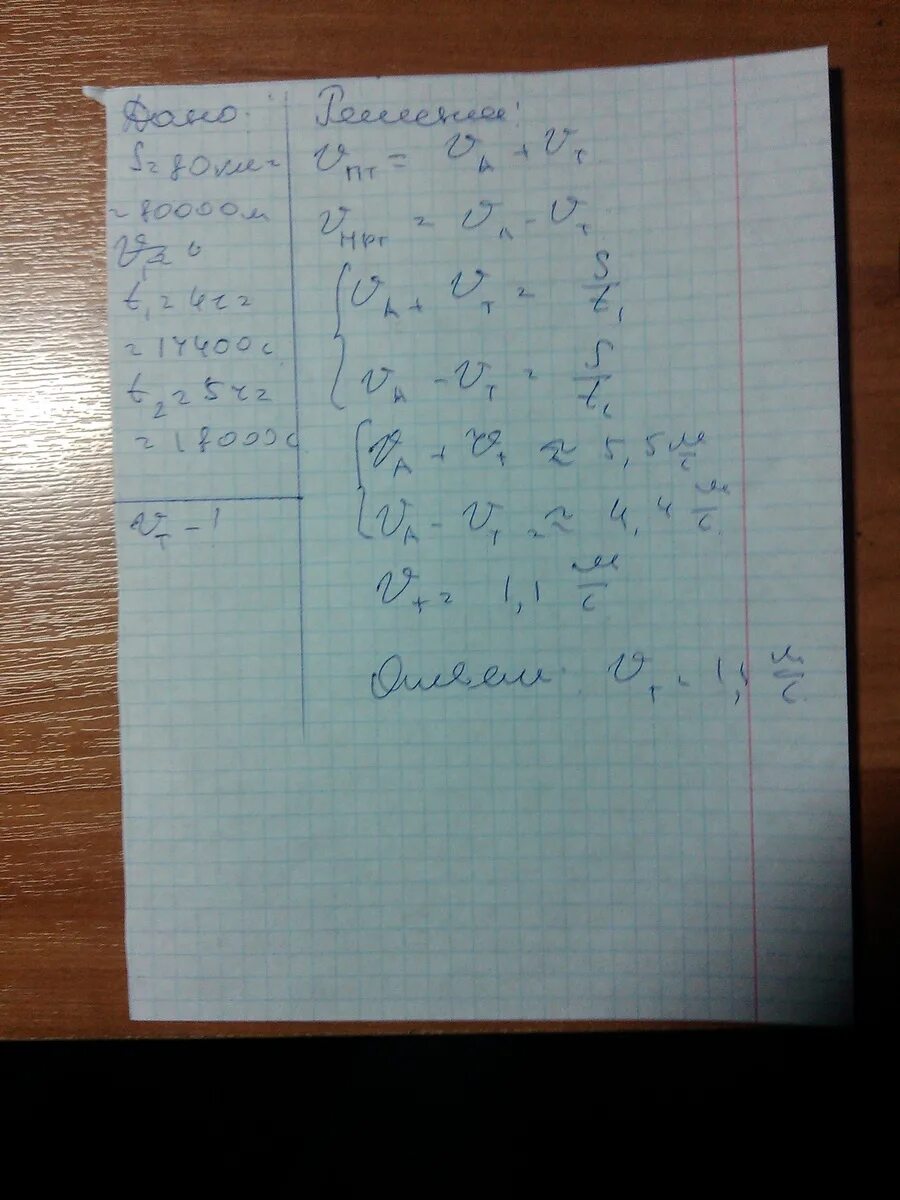 Дано:
S = 80 км =
= 80000 м
t₁ = 4 ч =
= 14400 с
t₂ = 5 ч =
= 18000 с
v_т - ?
Решение:
v_пт = v_л + v_т
v_нрт = v_л - v_т
v_л + v_т = S/t₁
v_л - v_т = S/t₂
v_л + v_т ≈ 5,5 м/с
v_л - v_т ≈ 4,4 м/с
v_т = 1,1 м/с
Ответ: v_т = 1,1 м/с